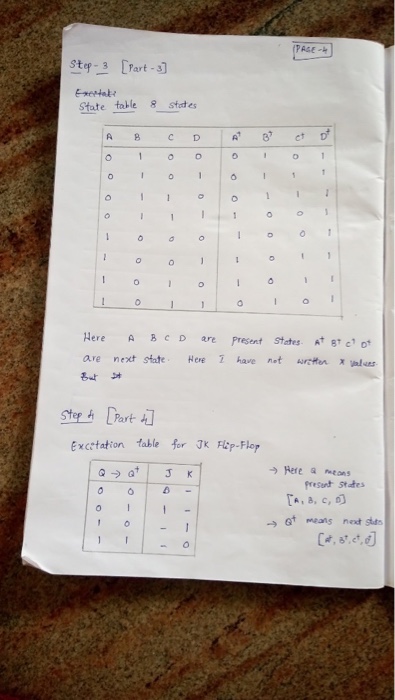 PAGE-4
Step-3 [Part-3]
State table 8 states
A B C D A⁺ B⁺ C⁺ D⁺
0 1 0 0 0 1 0 1
0 1 0 1 0 1 1 1
0 1 1 0 0 1 1 1
0 1 1 1 1 0 0 1
1 0 0 0 1 0 0 1
1 0 0 1 1 0 1 1
1 0 1 0 1 0 1 1
1 0 1 1 0 1 0 1
Here A B C D are present states A⁺ B⁺ C⁺ D⁺
are next state. Here I have not written x values.
But
Step 4 [Part 4]
Excitation table for JK Flip-Flop
Q → Q⁺ J K
0 0 0 -
0 1 1 -
1 0 - 1
1 1 - 0
→ Here Q means
present states
[A, B, C, D]
→ Q⁺ means next state
[A⁺, B⁺, C⁺, D⁺]